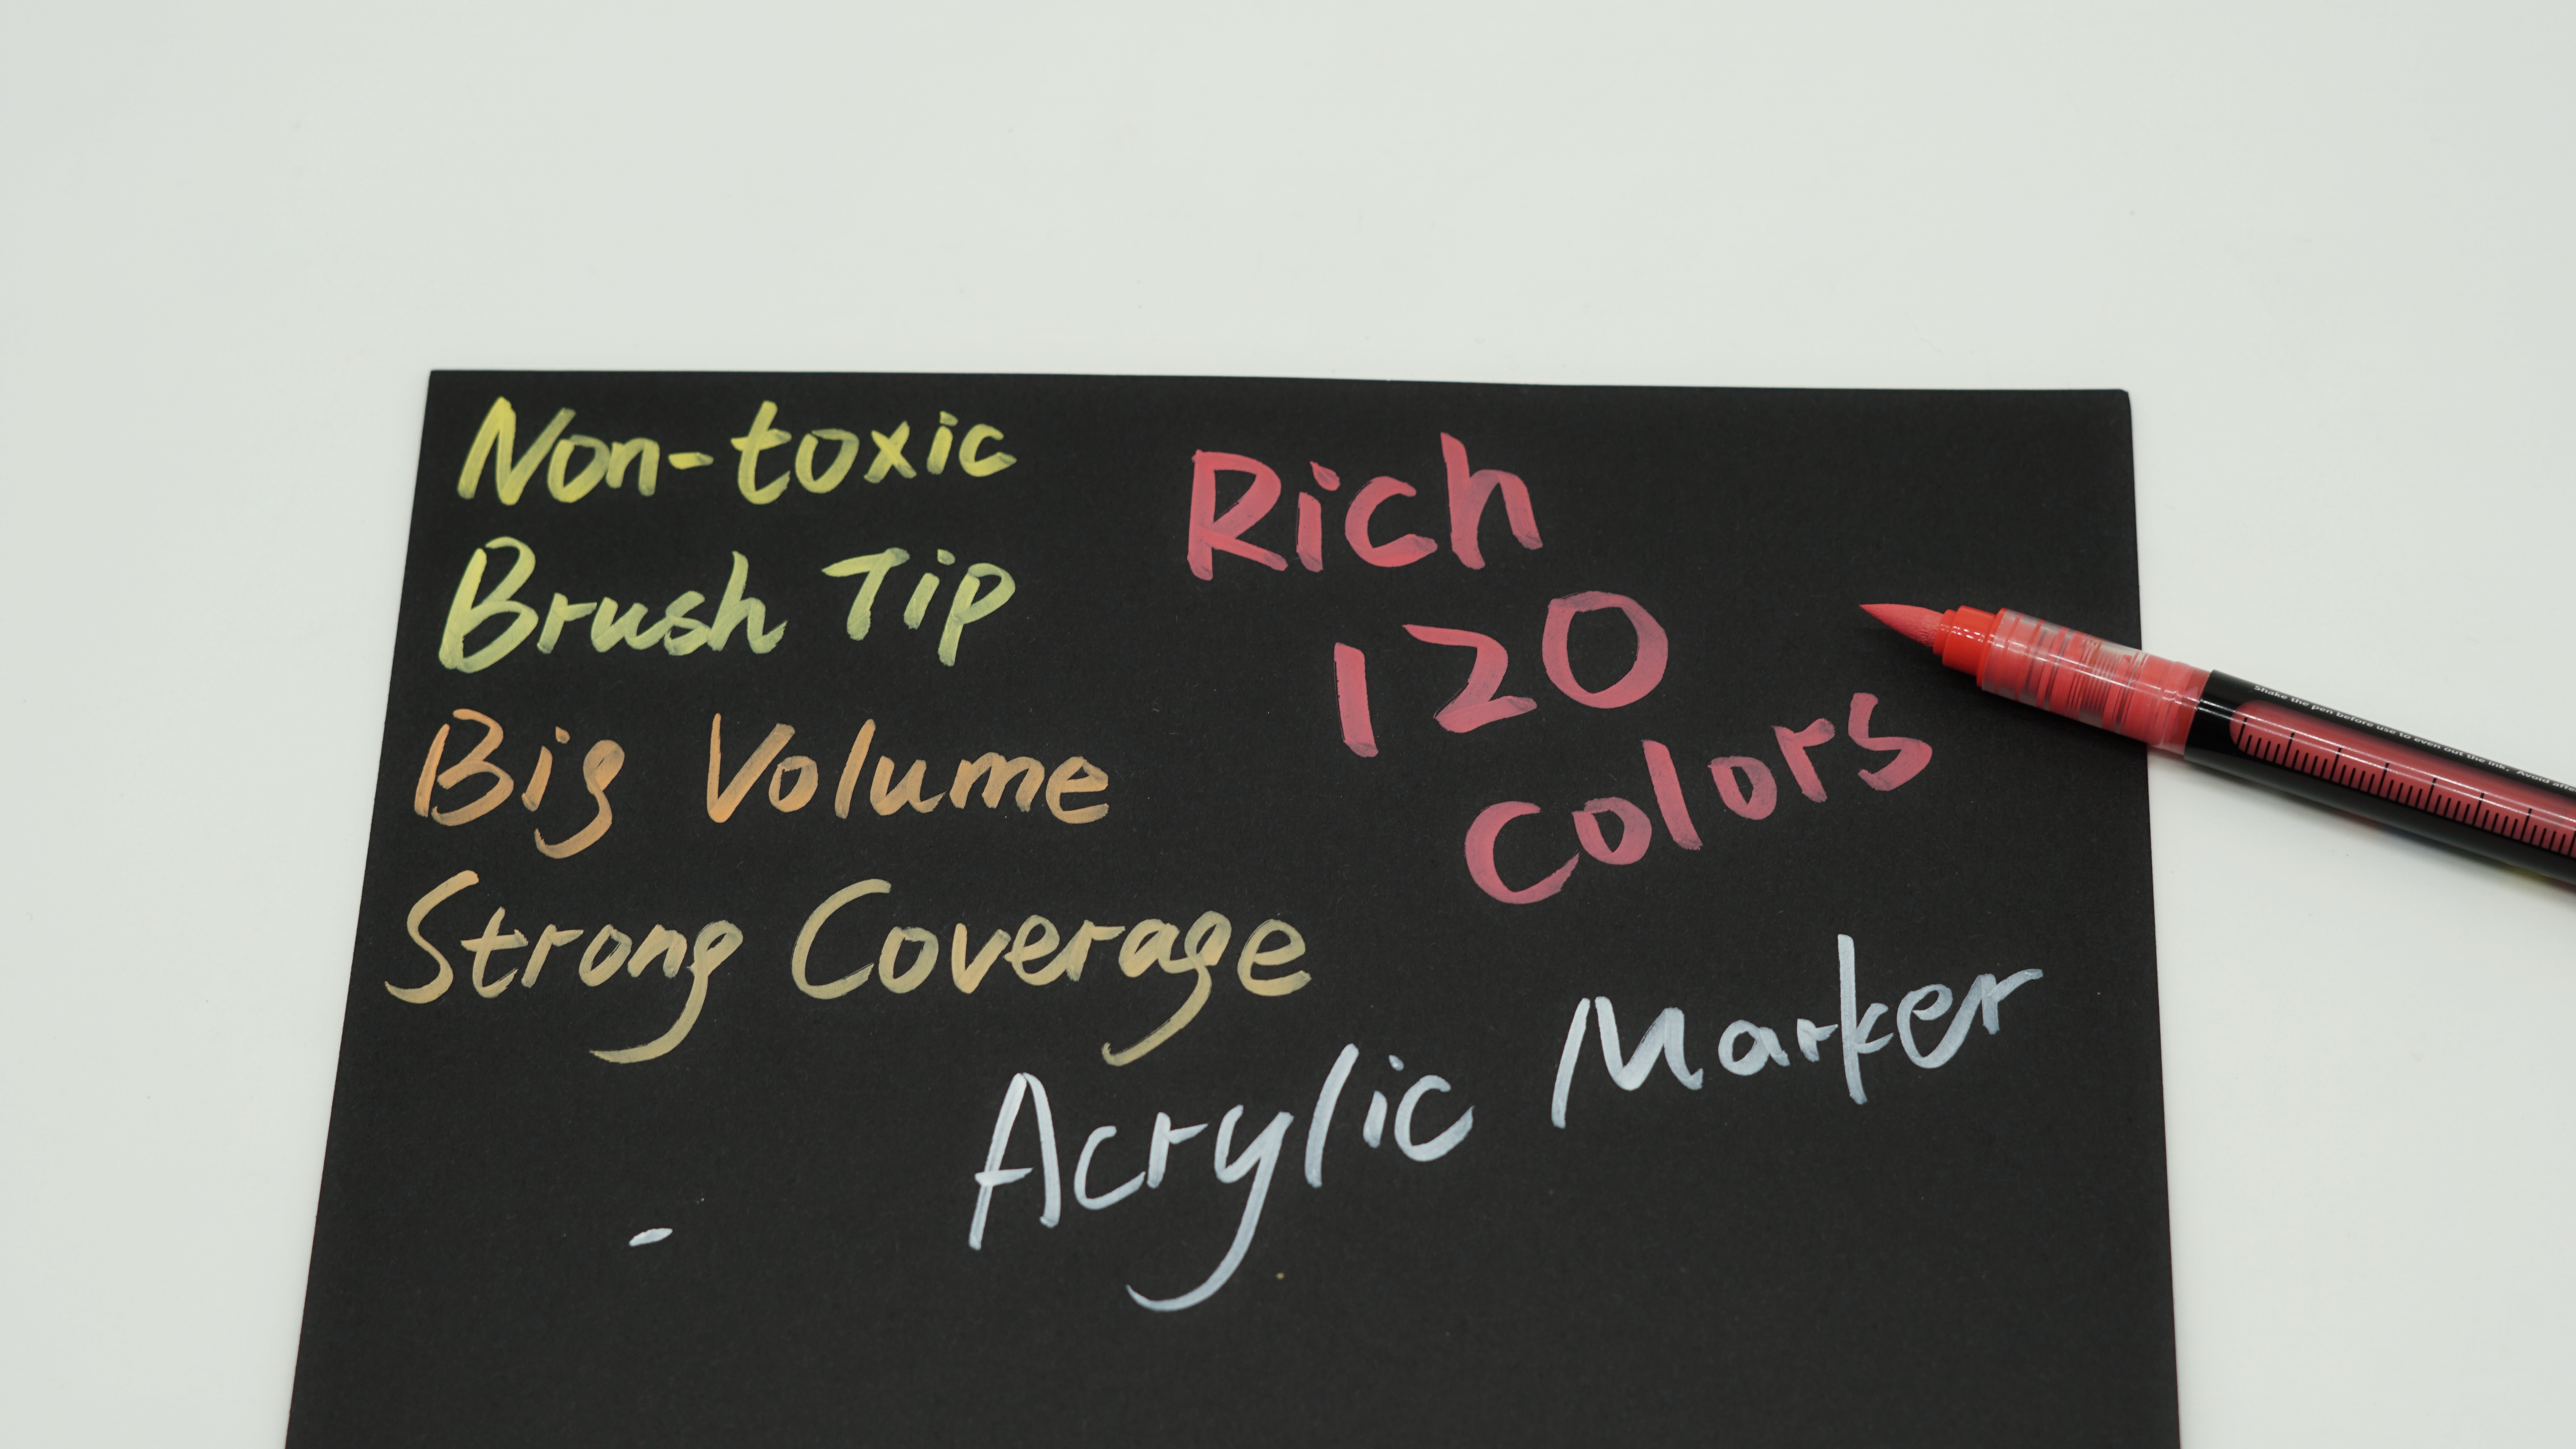 Non-toxic
Brush Tip
Big Volume
Strong Coverage
Rich
120
Colors
Acrylic Marker
Shake the pen before use to even out the ink. Avoid